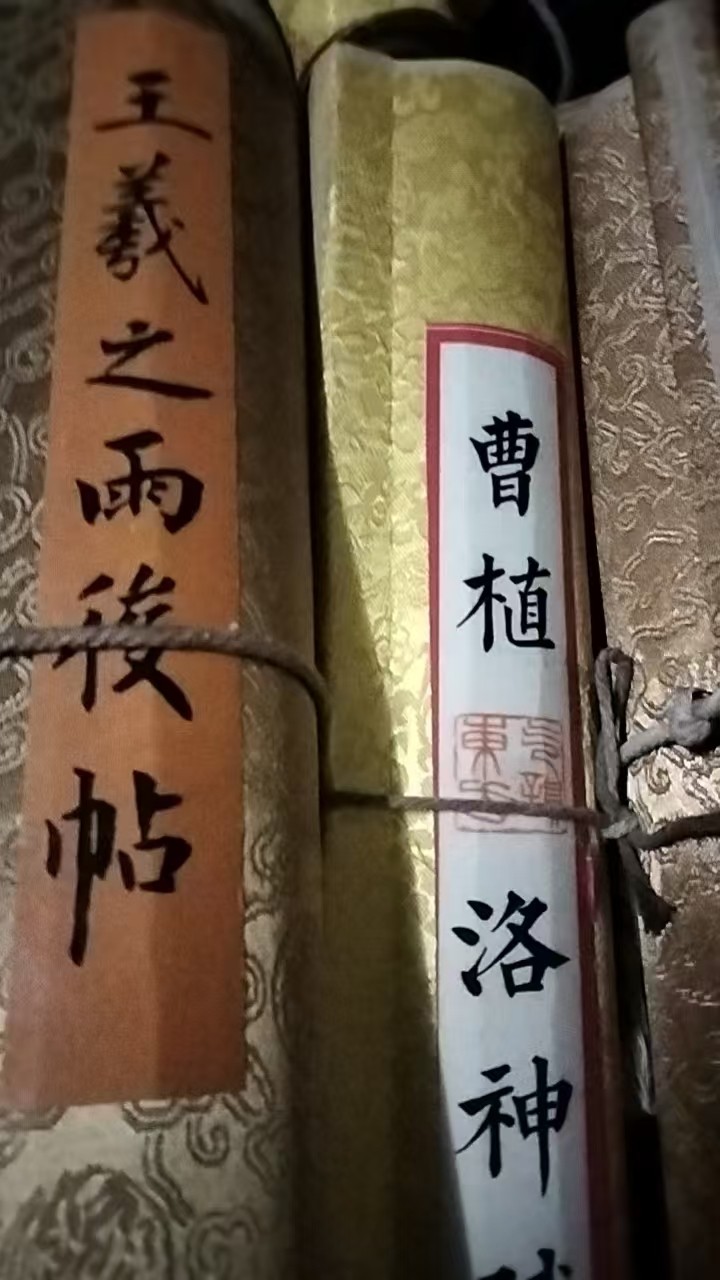 王羲之雨後帖
曹植洛神